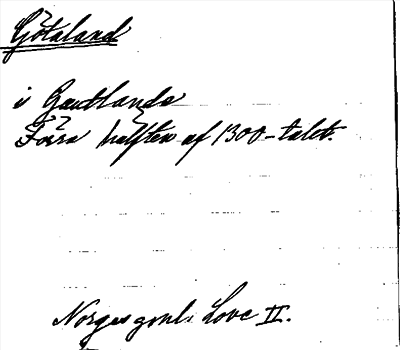 Götaland
i Gautlande
Förra hälften af 1300-talet.
Norges gml. Love II.